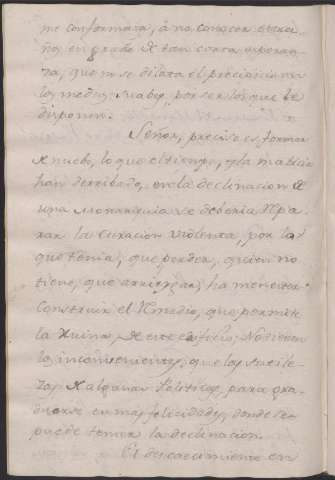 me conformara, à no conocer estra
ños en grado de tan corta esperan
za, que ni se dilata el precipicio en
los medios suabes, por ser los que le
disponen.
Señor, preciso es formar
de nuebo, lo que el tiempo, y la malicia
han derribado, en la declinacion de
una Monarquia se deberia repa
rar la curacion violenta, por lo
que tenia, que perder, quien no
tiene, que arriesgar, ha menester
construir el remedio, que permite
la ruina de este edificio; No
los incombenientes, que las sutile
zas de algunos Politicos, para
en mas felicidades, donde se
puede temer la declinacion.
El descaecimiento en